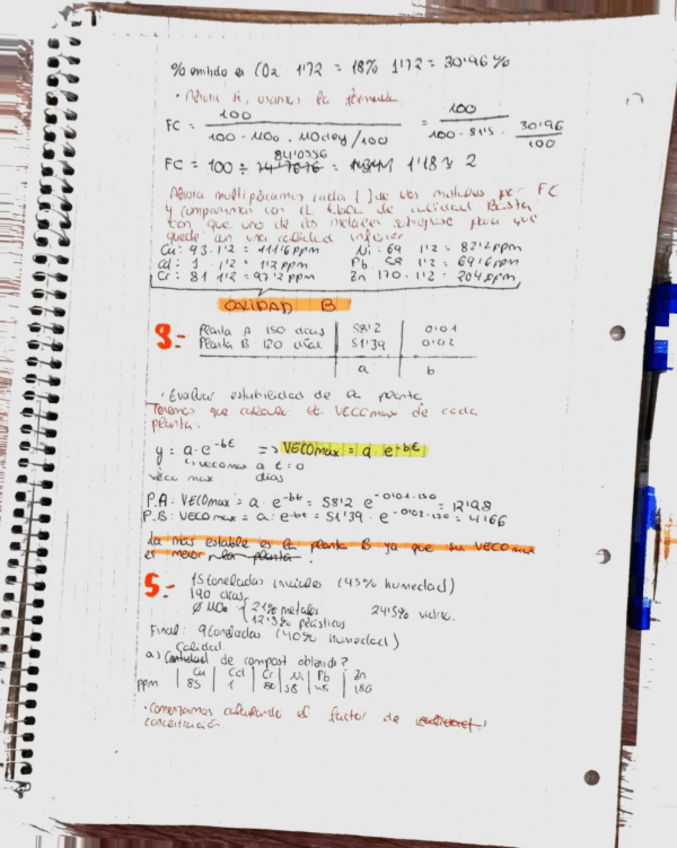 % emitido es CO2 · 1'72 = 18% 1'72 = 30'96 %
· Ahora si, usamos la fórmula.
FC = 100 / 100 - MOo · MOdeg/100 = 100 / 100 - 81'5 · 30'96/100
FC = 100 ÷ 84'0556 = 1'18 ≈ 2
Ahora multiplicamos cada [ ] de los metales por FC
y comparamos con la tabla de calidad. Basta
con que uno de los metales sobrepase para que
quede con una calidad inferior
Cu: 93 · 1'2 = 111'6 ppm Ni: 69 1'2 = 82'2 ppm
Cd: 1 · 1'2 = 1'2 ppm Pb 58 1'2 = 69'6 ppm
Cr: 81 1'2 = 97'2 ppm Zn 170 · 1'2 = 204 ppm
CALIDAD B
3.-
Planta A 150 días 58'2 0'01
Planta B 120 días 51'39 0'02
a b
· Evaluar estabilidad de la planta
Tenemos que calcular el VECOmax de cada
planta.
y = a · e^-bt => VECOmax = a · e^-bt
vecomax a t = 0
veco max días
P.A: VECOmax = a · e^-bt = 58'2 e^-0'01·150 = 12'98
P.B: VECOmax = a · e^-bt = 51'39 · e^-0'02·120 = 4'66
La más estable es la planta B ya que su VECOmax
es menor
5.- 15 toneladas iniciales (45% humedad)
190 días
Ø MOo { 21% metales 24'5% vidrio.
12'3% plásticos
Final: 9 toneladas (40% humedad)
Calidad
a) Cantidad de compost obtenido?
Cu Cd Cr Ni Pb Zn
ppm 85 1 80 58 48 180
· Comenzamos calculando el factor de
concentración.